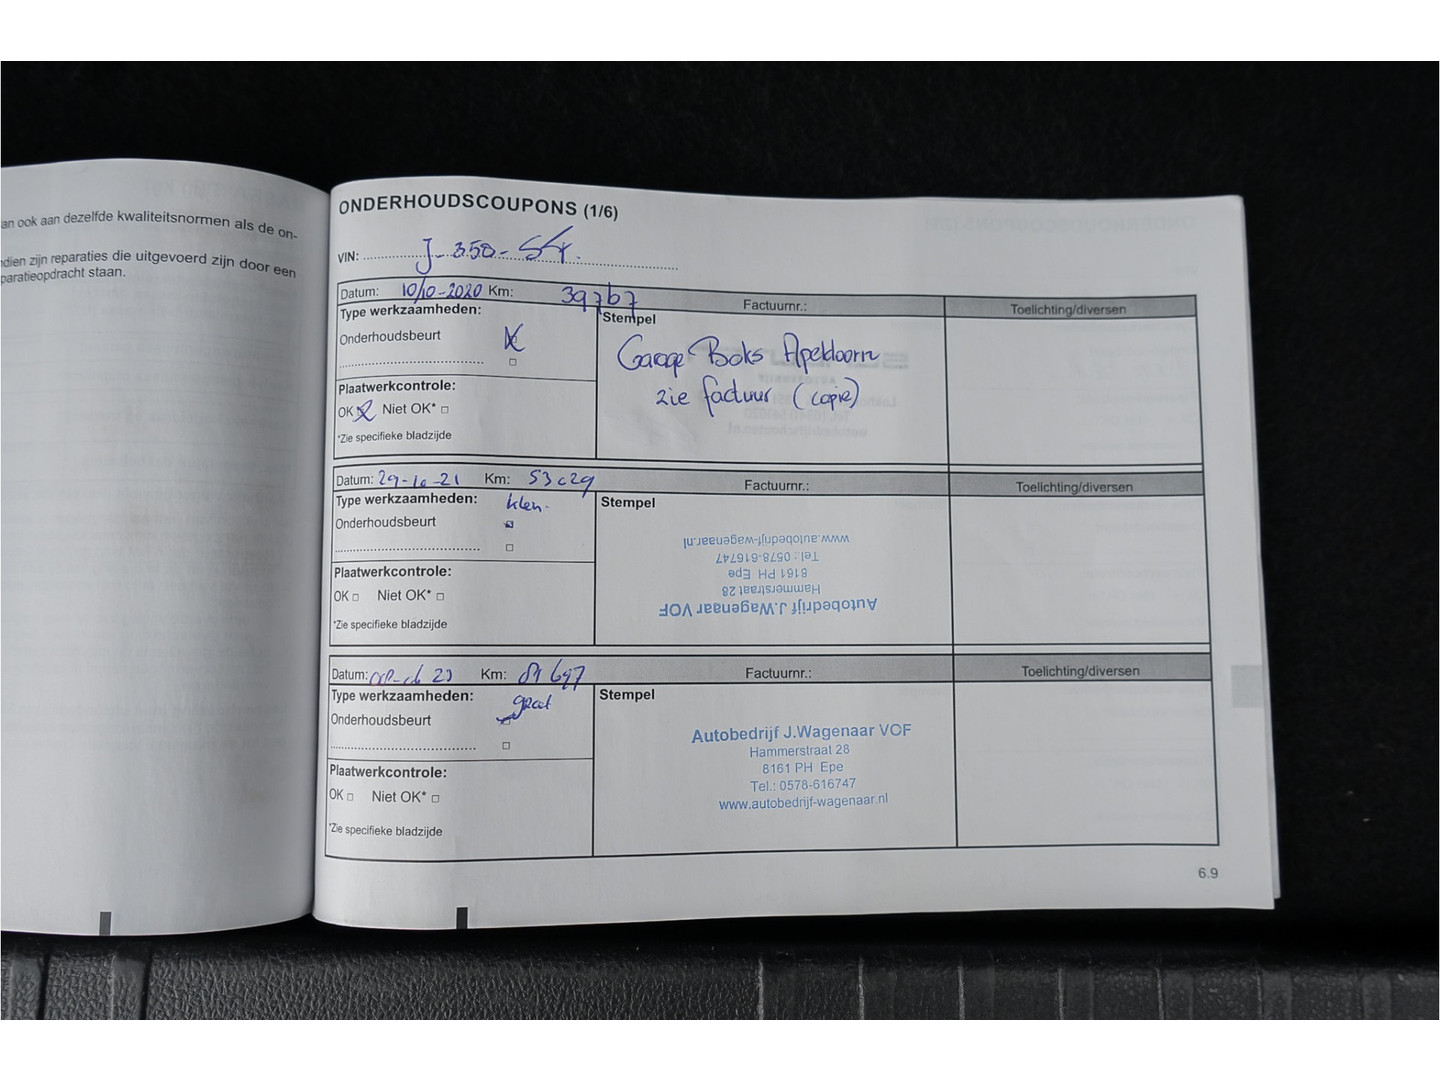 an ook aan dezelfde kwaliteitsnormen als de on-
dien zijn reparaties die uitgevoerd zijn door een
paratieopdracht staan.
ONDERHOUDSCOUPONS (1/6)
VIN: J-358-
Datum: 10/10-2020 Km: 39767 Factuurnr.: Toelichting/diversen
Type werkzaamheden: Stempel
Onderhoudsbeurt
Garage Boks Apeldoorn
zie factuur (copie)
Plaatwerkcontrole:
OK Niet OK*
*Zie specifieke bladzijde
Datum: 29-10-21 Km: 53029 Factuurnr.: Toelichting/diversen
Type werkzaamheden: klein Stempel
Onderhoudsbeurt
Autobedrijf J.Wagenaar VOF
Hammerstraat 28
8161 PH Epe
Tel.: 0578-616747
www.autobedrijf-wagenaar.nl
Plaatwerkcontrole:
OK Niet OK*
*Zie specifieke bladzijde
Datum: 23 Km: 81697 Factuurnr.: Toelichting/diversen
Type werkzaamheden: groot Stempel
Onderhoudsbeurt
Autobedrijf J.Wagenaar VOF
Hammerstraat 28
8161 PH Epe
Tel.: 0578-616747
www.autobedrijf-wagenaar.nl
Plaatwerkcontrole:
OK Niet OK*
*Zie specifieke bladzijde
6.9